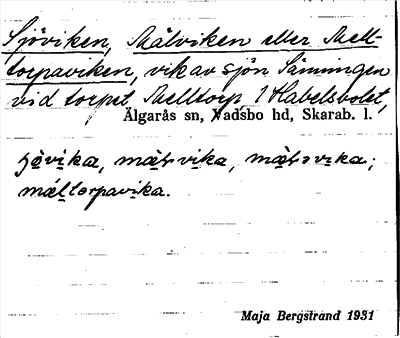 Sjöviken, Mälviken eller Mell-
torpaviken, vik av sjön Sänningen
vid torpet Melltorp, 1 Habelsbolet,
Älgarås sn, Vadsbo hd, Skarab. l.
måltorpavika.
Maja Bergstrand 1931